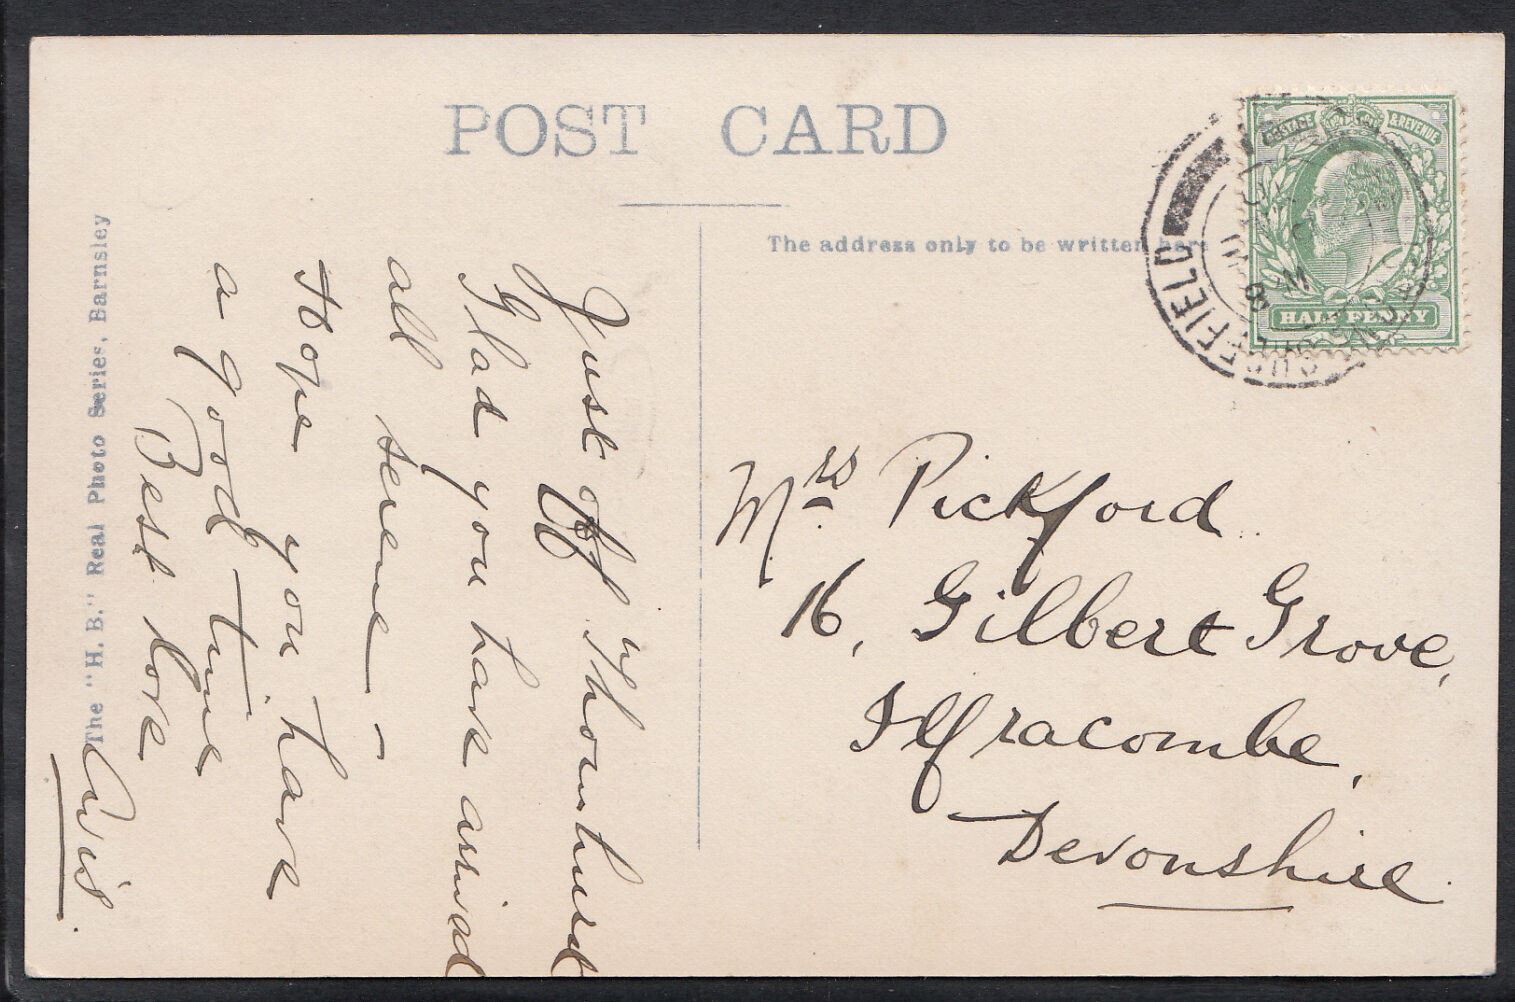 POST CARD
The address only to be written here
POSTAGE & REVENUE
HALF PENNY
SHEFFIELD
Mrs Pickford
16, Gilbert Grove,
Ilfracombe,
Devonshire
Just off "Thornhurst
Glad you have arrived
all serene —
Hope you have
a good time
Best love
Avis.
The "H. B." Real Photo Series, Barnsley